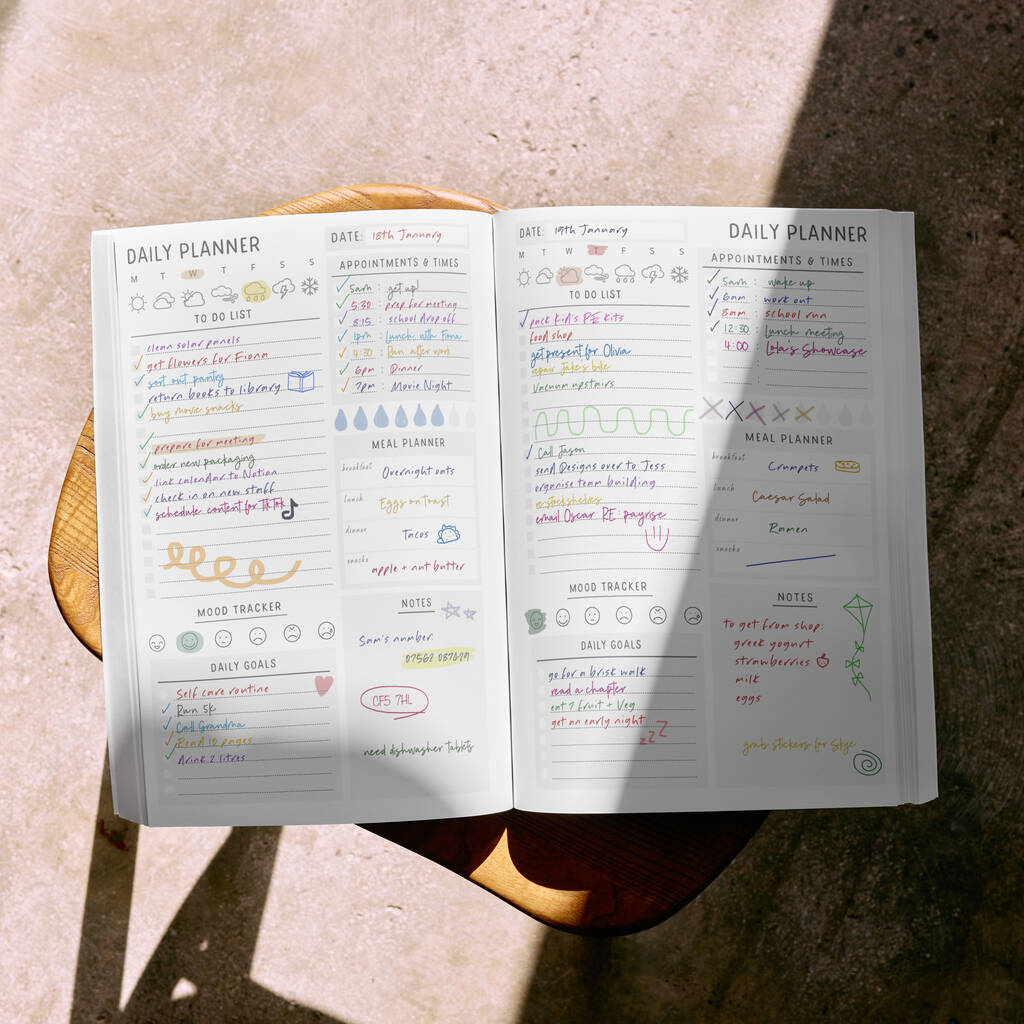 DAILY PLANNER
M T W T F S S
TO DO LIST
clean solar panels
get flowers for Fiona
sort out pantry
return books to library
buy movie snacks
prepare for meeting
order new packaging
link calendar to Notion
check in on new staff
schedule content for TikTok
MOOD TRACKER
DAILY GOALS
Self care routine
Run 5k
Call Grandma
Read 10 pages
drink 2 litres
DATE: 18th January
APPOINTMENTS & TIMES
5am : get up!
5:30 : prep for meeting
8:15 : school drop off
1pm : Lunch with Fiona
4:30 : Run after work
6pm : Dinner
7pm : Movie Night
MEAL PLANNER
breakfast
Overnight oats
lunch
Eggs on toast
dinner
Tacos
snacks
apple + nut butter
NOTES
Sam's number:
07562 087629
CF5 7HL
need dishwasher tablets
DATE: 19th January
M T W T F S S
TO DO LIST
pack kid's PE kits
food shop
get present for Olivia
repair Jake's bike
vacuum upstairs
Call Jason
send Designs over to Jess
organise team building
re-stock shelves
email Oscar RE: payrise
MOOD TRACKER
DAILY GOALS
go for a brisk walk
read a chapter
eat 7 fruit + Veg
get an early night
zZZ
DAILY PLANNER
APPOINTMENTS & TIMES
5am : wake up
6am : work out
8am : school run
12:30 : Lunch meeting
4:00 : Lola's Showcase
MEAL PLANNER
breakfast
Crumpets
lunch
Caesar Salad
dinner
Ramen
snacks
NOTES
to get from shop:
greek yogurt
strawberries
milk
eggs
grab stickers for Skye